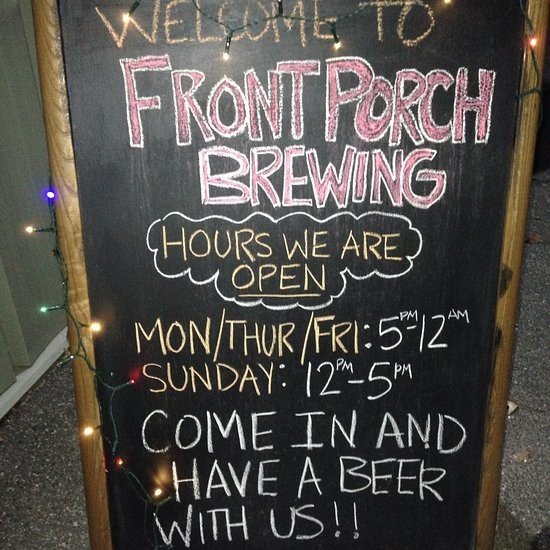 WELCOME TO
FRONT PORCH
BREWING
HOURS WE ARE
OPEN
MON/THUR/FRI: 5PM-12AM
SUNDAY: 12PM-5PM
COME IN AND
HAVE A BEER
WITH US!!